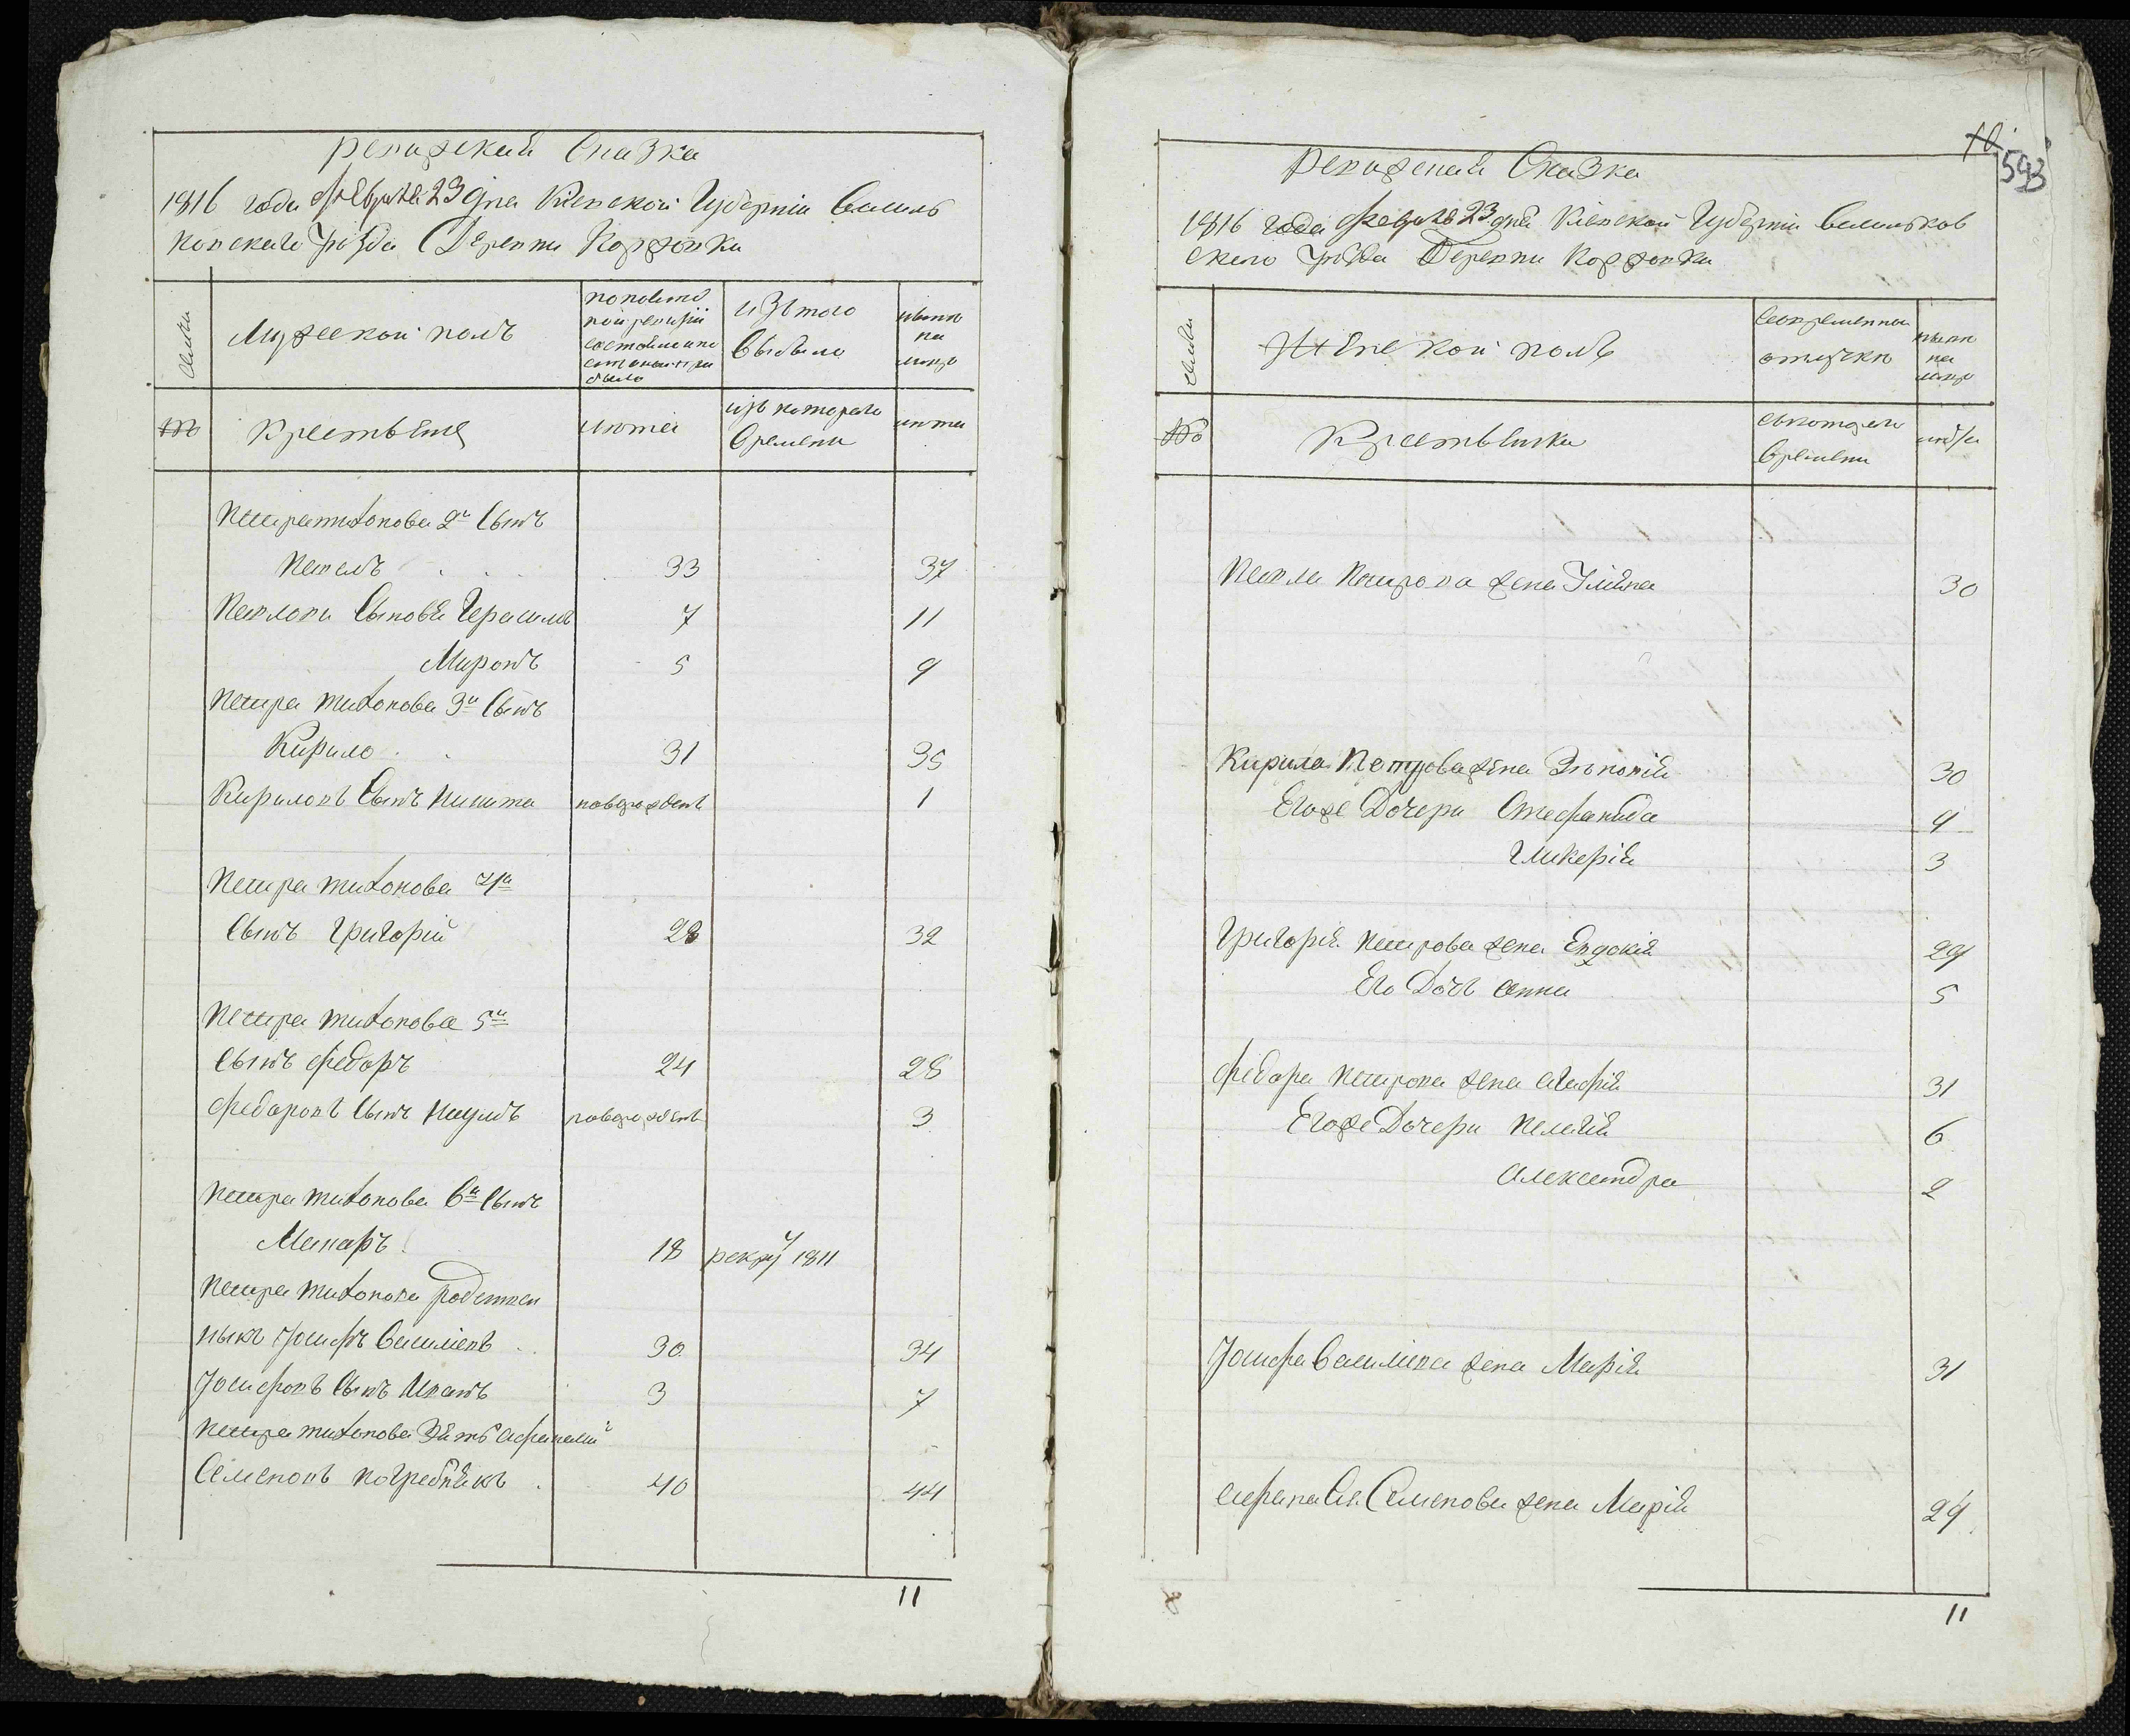 Ревижскай Сказка
1816 года февраля 23 дня Киевской Губернiи Василь
ковскаго уезда Деревни Коржовки
семьи
Мужеской полъ
изъ того
Выбыло
ныне
на
лицо
№
Крестьяне
лета
изъ котораго
Времени
лета
Петра тихонова 2й Сынъ
Павелъ 33 37
Павлови Сыновья Герасимъ 7 11
Миронъ 5 9
Петра тихонова 3й Сынъ
Кирило 31 35
Кириловъ Сынъ Никита новорожденъ 1
Петра тихонова 4й
Сынъ Григорiй 28 32
Петра тихонова 5й
Сынъ федоръ 24 28
федоровъ Сынъ Наумъ новорожденъ 3
Петра тихонова 6й Сынъ
Макаръ 18 рекру 1811
Петра тихонова родствен
никъ Iосифъ Василiевъ 30 34
Iосифовъ Сынъ Иванъ 3 7
Петра тихонова Зять афанасiй
Семеновъ погребнякъ 40 44
11
10
593
Ревижскай Сказка
1816 года февраля 23 дня Киевской Губернiи Васильков
скаго уезда Деревни Коржовки
семьи
Женской полъ
Временной
отлучке
ныне
на
лицо
№
Крестьянки
съкотораго
Времени
лета
Павла Петрова жена Улияна 30
Кирила Петрова жена Зеновiя 30
Егоже Дочери Стефанида 9
Гликерiя 3
Григорiя Петрова жена Евдокiя 29
Его Дочь анна 5
федора Петрова жена агафiя 31
Егоже Дочери Пелагiя 6
александра 2
Iосифа Василiева жена Марiя 31
афанасiя Семенова жена Марiя 29
11